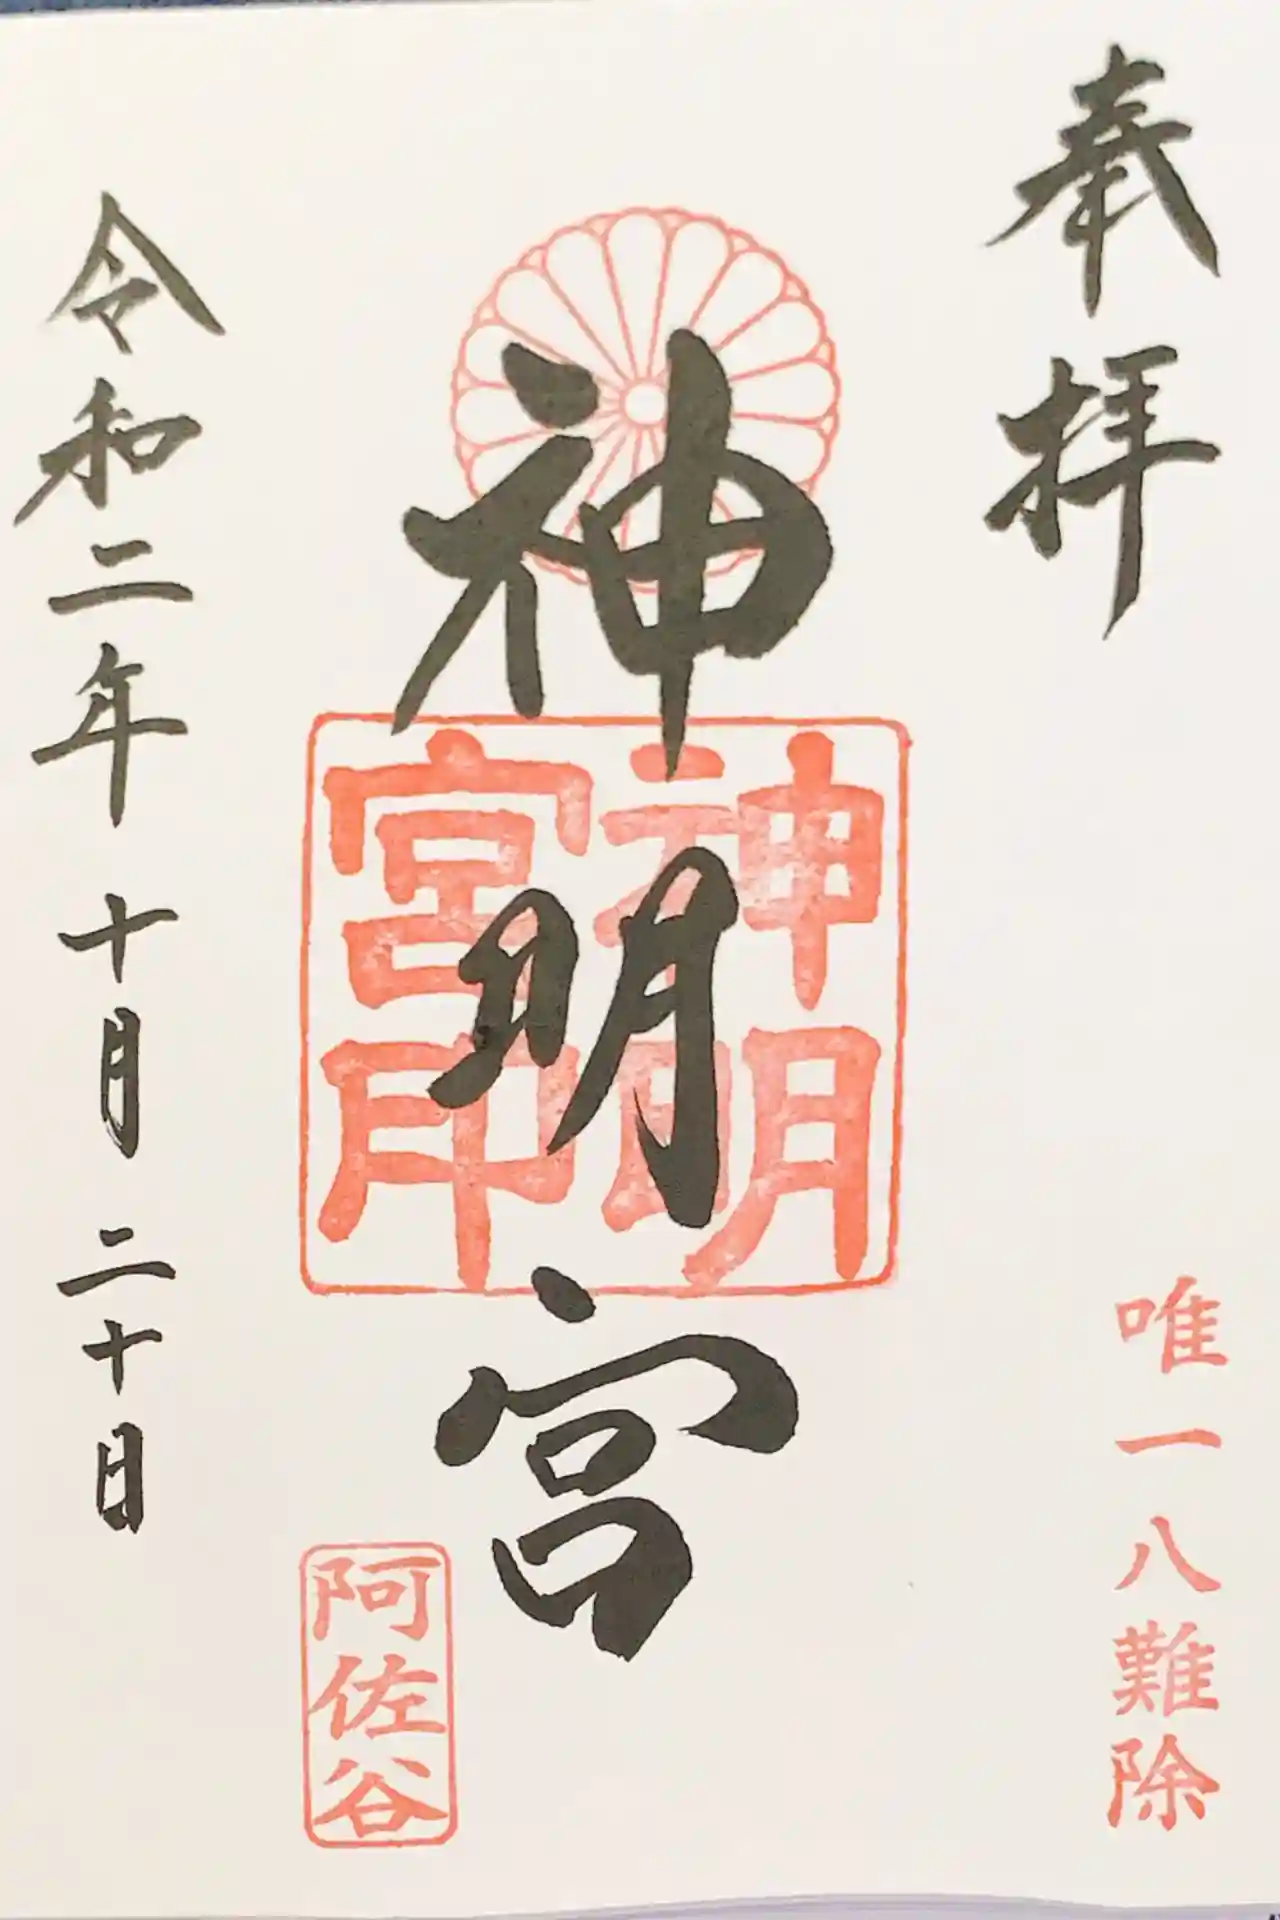 奉拝
唯一八難除
神明宮
神明
宮印
阿佐谷
令和二年十月二十日